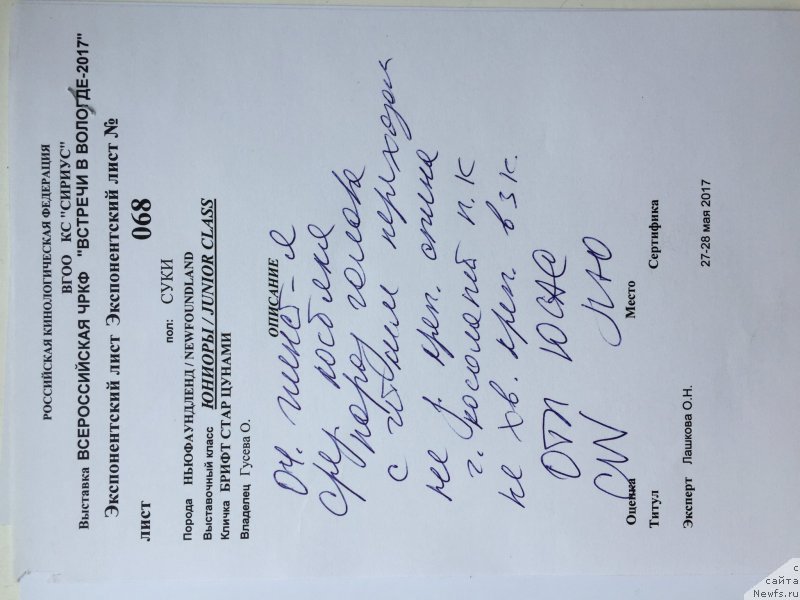 РОССИЙСКАЯ КИНОЛОГИЧЕСКАЯ ФЕДЕРАЦИЯ
ВГОО КС "СИРИУС"
Выставка ВСЕРОССИЙСКАЯ ЧРКФ "ВСТРЕЧИ В ВОЛОГДЕ-2017"
Экспонентский лист Экспонентский лист №
лист 068
Порода НЬЮФАУНДЛЕНД / NEWFOUNDLAND пол: СУКИ
Выставочный класс ЮНИОРЫ / JUNIOR CLASS
Кличка БРИФТ СТАР ЦУНАМИ
Владелец Гусева О.
ОПИСАНИЕ
оч.
сред. костяка
голова
с переходом
креп. спина
г. косолапит п. к
не хв. креп. в з к.
отл ЮСАС
CW ЛЮ
Оценка Место
Титул Сертифика
Эксперт Лашкова О.Н. 27-28 мая 2017
с
сайта
Newfs.ru